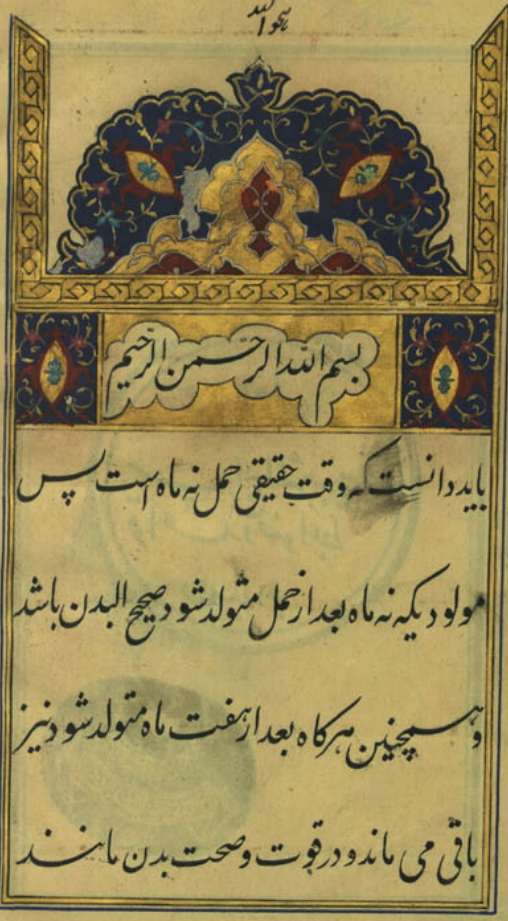 هو الله
بسم الله الرحمن الرحیم
باید دانست که وقت حقیقی حمل نه ماه است پس
مولودیکه نه ماه بعد از حمل متولد شود صحیح البدن باشد
و همچنین هرکاه بعد از هفت ماه متولد شود نیز
باقی می ماند و در قوت و صحت بدن مانند